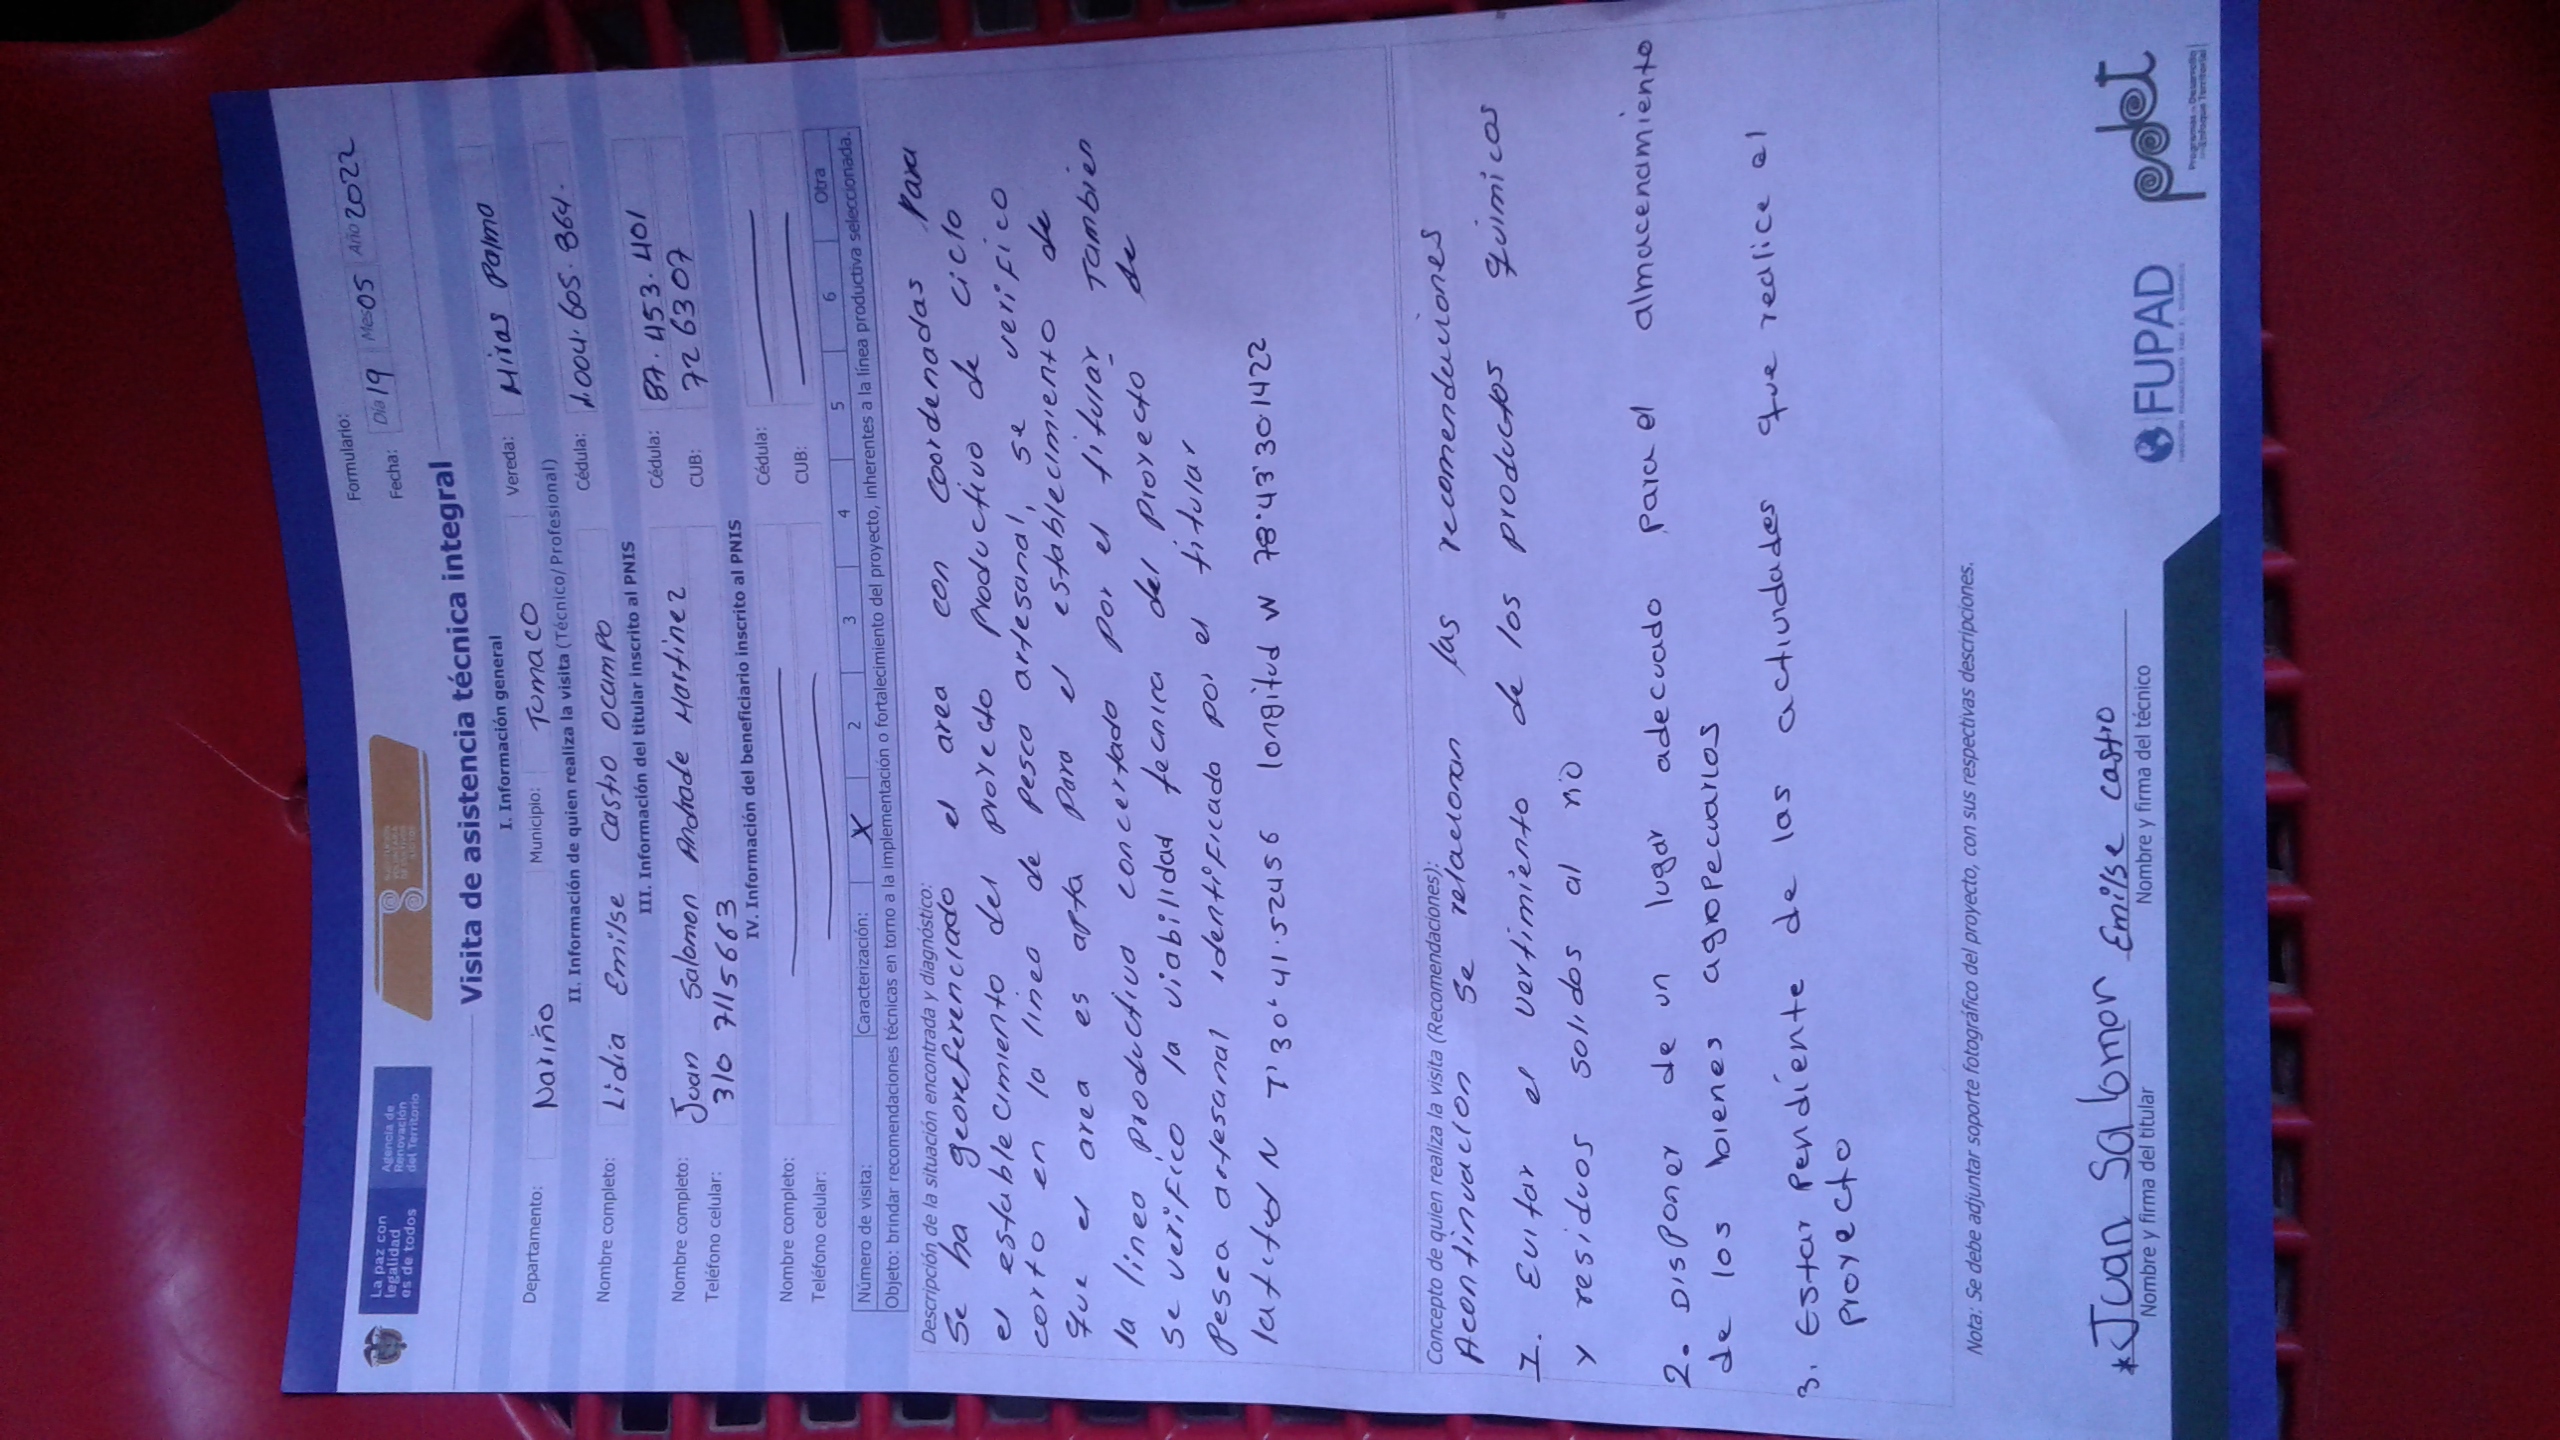 La paz con
legalidad
es de todos
Agencia de
Renovación
del Territorio
Formulario:
Fecha: Día 19 Mes 05 Año 2022
Visita de asistencia técnica integral
I. Información general
Departamento: Nariño Municipio: Tumaco Vereda: Miras Palmo
II. Información de quien realiza la visita (Técnico/ Profesional)
Nombre completo: Lidia Emilse Castro Ocampo Cédula: 1.004.605.864.
III. Información del titular inscrito al PNIS
Nombre completo: Juan Salomon Andrade Martinez Cédula: 87.453.401
Teléfono celular: 310 7115663 CUB: 726307
IV. Información del beneficiario inscrito al PNIS
Nombre completo: Cédula:
Teléfono celular: CUB:
Número de visita: Caracterización: X 2 3 4 5 6 Otra
Objeto: brindar recomendaciones técnicas en torno a la implementación o fortalecimiento del proyecto, inherentes a la línea productiva seleccionada.
Descripción de la situación encontrada y diagnóstico:
Se ha georeferenciado el area con coordenadas Para
el establecimiento del proyecto productivo de ciclo
corto en la linea de pesca artesanal, se verifico
que el area es apta para el establecimiento de
la linea productiva concertado por el titular Tambien
se verifico la viabilidad tecnica del proyecto de
pesca artesanal identificado por el titular
latitud N 1°30'41.52456 longitud W 78°43'30.1422
Concepto de quien realiza la visita (Recomendaciones):
Acontinuación se relacionan las recomendaciones
1. Evitar el vertimiento de los productos quimicos
y residuos solidos al rio
2. Disponer de un lugar adecuado para el almacenamiento
de los bienes agropecuarios
3. Estar Pendiente de las actividades que realice el
proyecto
Nota: Se debe adjuntar soporte fotográfico del proyecto, con sus respectivas descripciones.
*Juan Salomon Emilse Castro
Nombre y firma del titular Nombre y firma del técnico
FUPAD
pdet
Programas de Desarrollo
con Enfoque Territorial